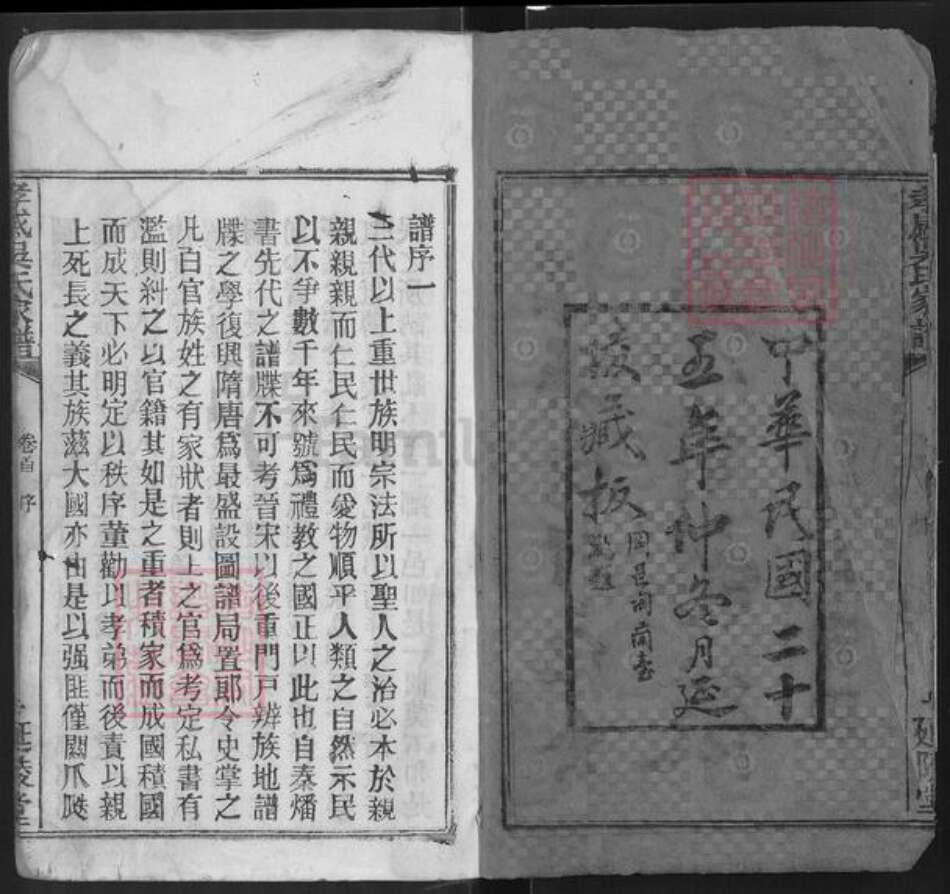 中華民國二十
五年仲冬月延
陵藏板
孝感吳氏家譜
延陵堂
譜序一
三代以上重世族明宗法所以聖人之治必本於親
親親親而仁民仁民而愛物順乎人類之自然示民
以不爭數千年來號爲禮教之國正以此也自秦燔
書先代之譜牒不可考晉宋以後重門戶辨族地譜
牒之學復興隋唐爲最盛設圖譜局置郎令史掌之
凡百官族姓之有家狀者則上之官爲考定私書有
濫則糾之以官籍其如是之重者積家而成國積國
而成天下必明定以秩序董勸以孝弟而後責以親
上死長之義其族蕃大國亦由是以强匪僅閥爪瓞
孝感吳氏家譜
卷首 序
延陵堂